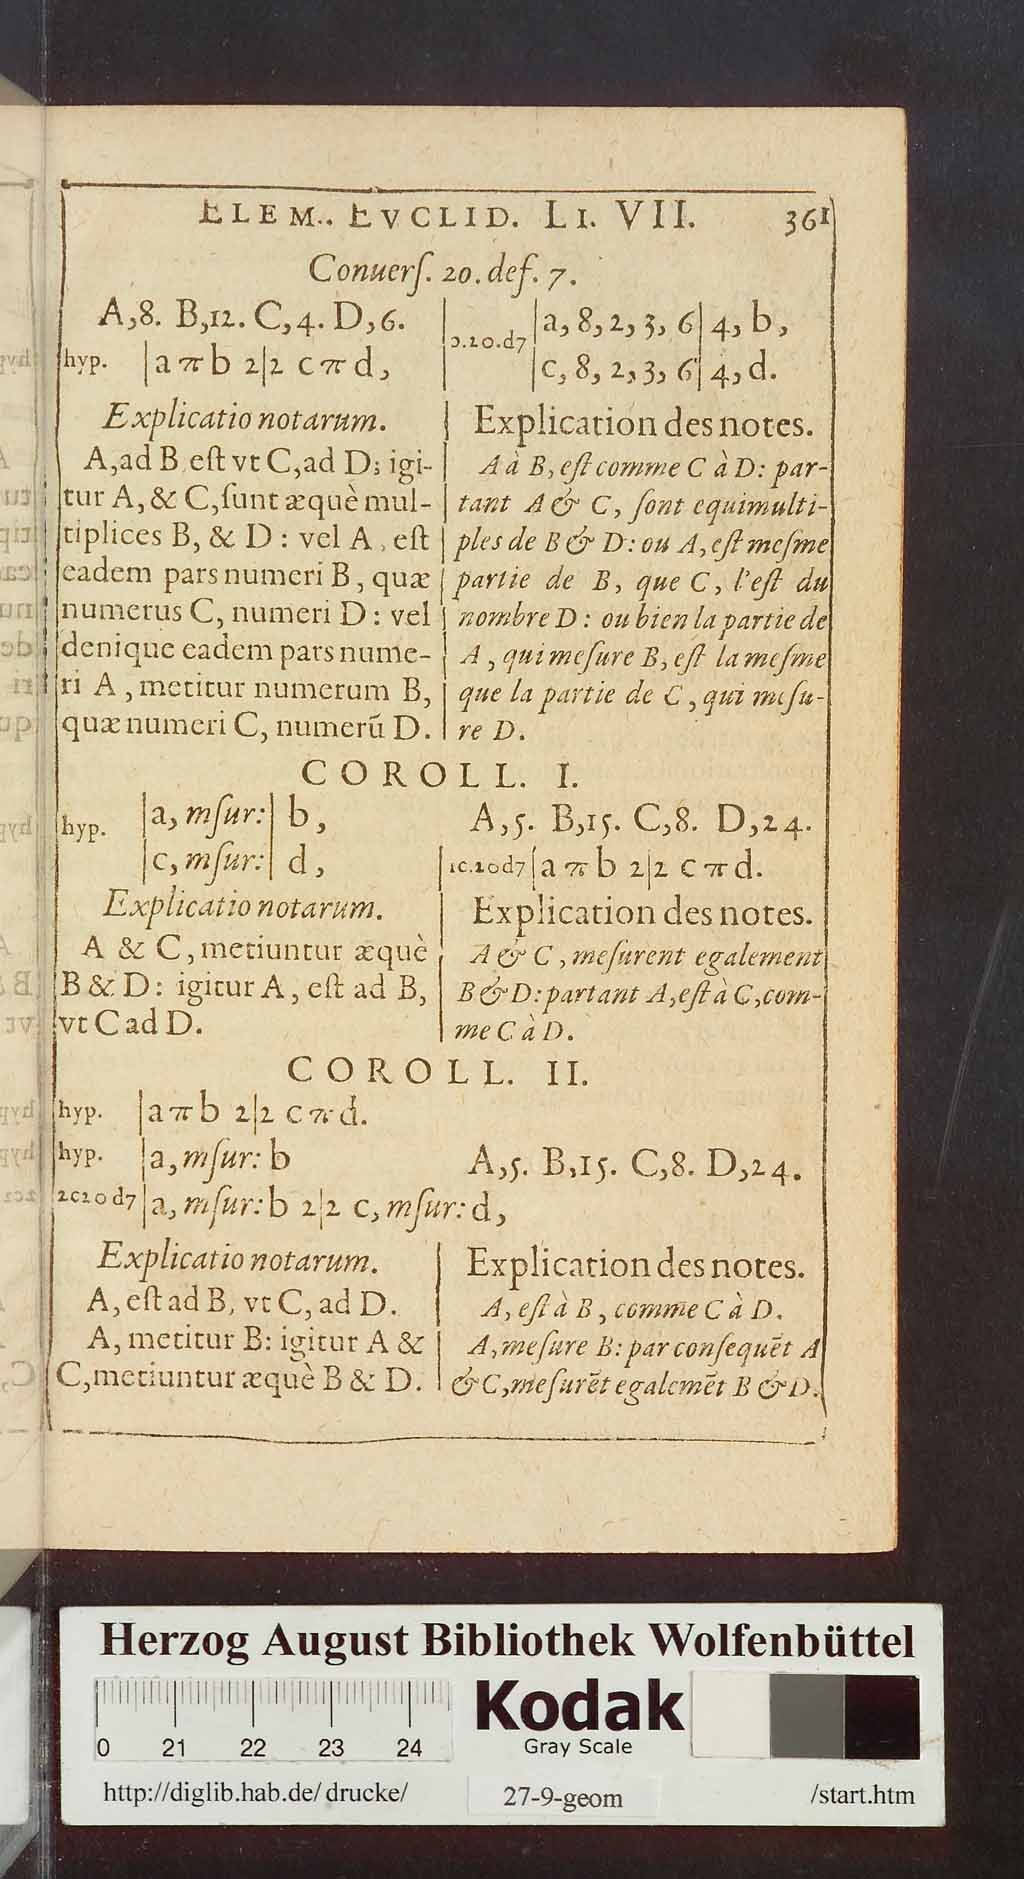 ELEM. EVCLID. LI. VII. 361
Conuerſ. 20. def. 7.
A,8. B,12. C,4. D,6.
hyp. |a π b 2|2 c π d,
ɔ.20.d7 |a, 8, 2, 3, 6| 4, b,
|c, 8, 2, 3, 6| 4, d.
Explicatio notarum.
A, ad B eſt vt C, ad D; igi-
tur A, & C, ſunt æquè mul-
tiplices B, & D : vel A, eſt
eadem pars numeri B, quæ
numerus C, numeri D : vel
denique eadem pars nume-
ri A, metitur numerum B,
quæ numeri C, numerū D.
Explication des notes.
A à B, eſt comme C à D: par-
tant A & C, ſont equimulti-
ples de B & D: ou A, eſt meſme
partie de B, que C, l'eſt du
nombre D : ou bien la partie de
A, qui meſure B, eſt la meſme
que la partie de C, qui meſu-
re D.
COROLL. I.
hyp. |a, mſur:| b,
|c, mſur:| d,
A,5. B,15. C,8. D,24.
1c.20d7 |a π b 2|2 c π d.
Explicatio notarum.
A & C, metiuntur æquè
B & D: igitur A, eſt ad B,
vt C ad D.
Explication des notes.
A & C, meſurent egalement
B & D: partant A, eſt à C, com-
me C à D.
COROLL. II.
hyp. |a π b 2|2 c π d.
hyp. |a, mſur: b
A,5. B,15. C,8. D,24.
2c20d7 |a, mſur: b 2|2 c, mſur: d,
Explicatio notarum.
A, eſt ad B, vt C, ad D.
A, metitur B: igitur A &
C, metiuntur æquè B & D.
Explication des notes.
A, eſt à B, comme C à D.
A, meſure B: par conſequēt A
& C, meſurēt egalemēt B & D.
Herzog August Bibliothek Wolfenbüttel
0 21 22 23 24
Kodak
Gray Scale
http://diglib.hab.de/ drucke/ 27-9-geom /start.htm